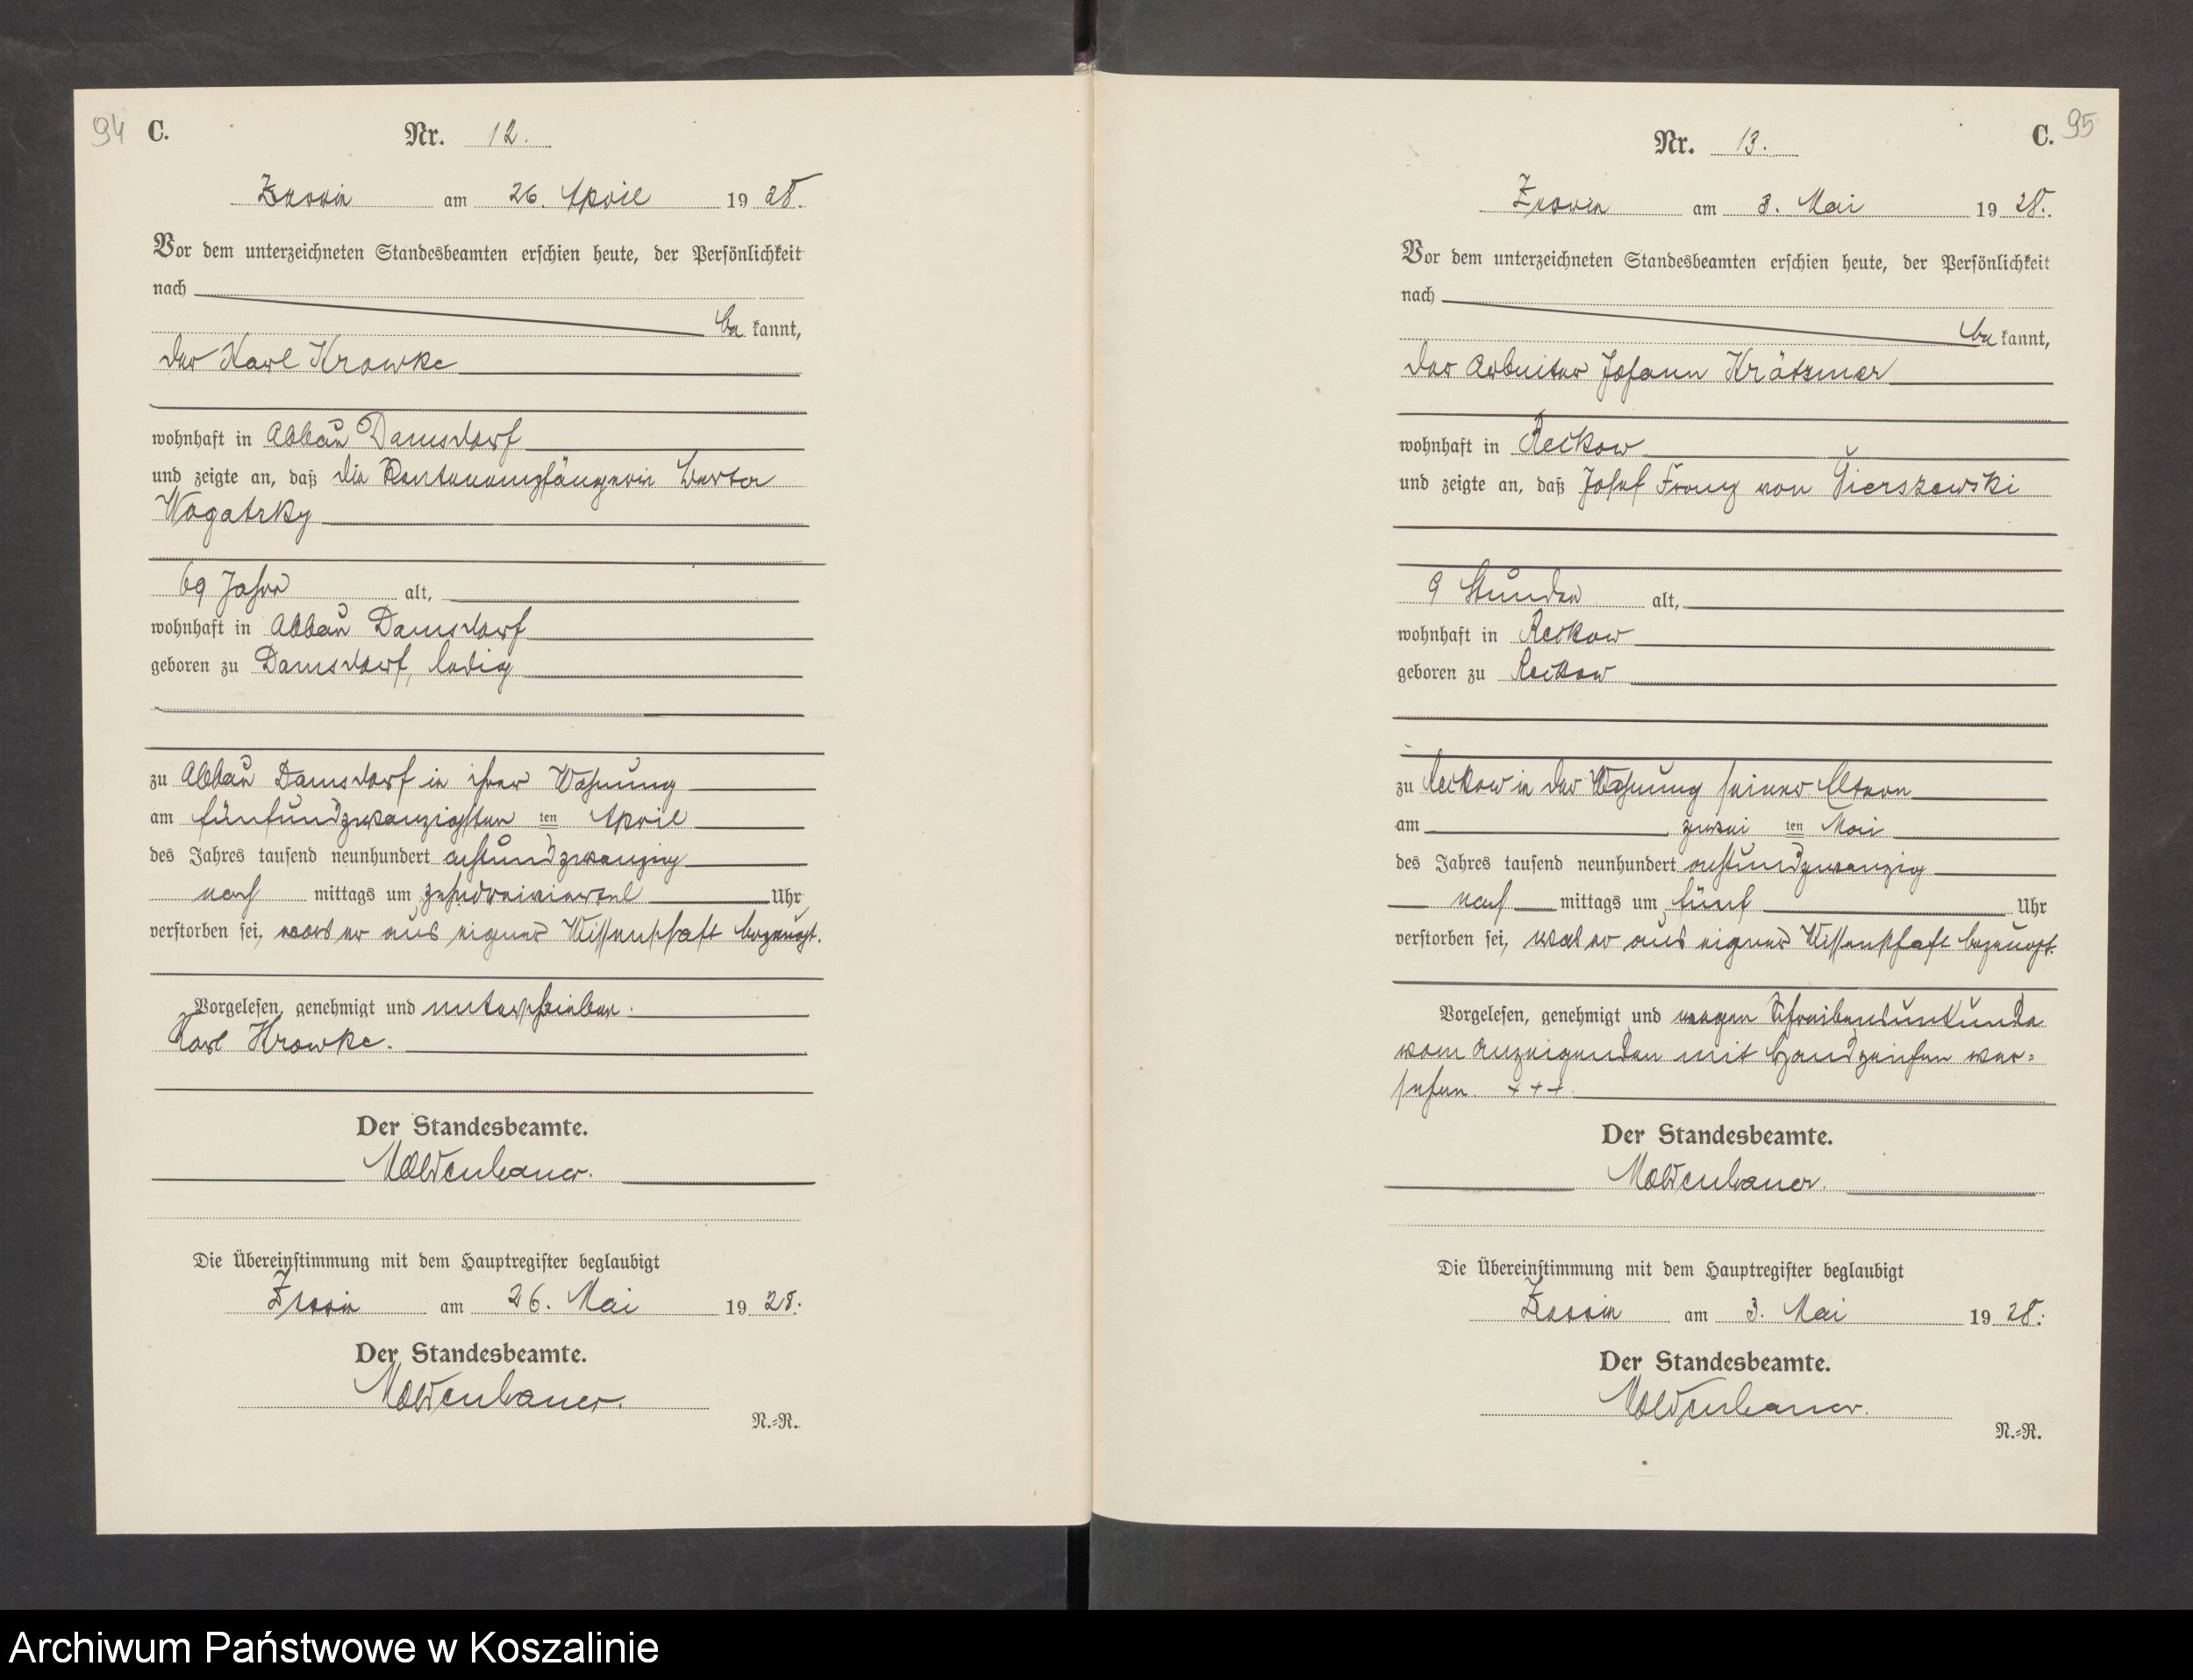 94 C.
Nr. 12.
Zussin am 26. April 1928.
Vor dem unterzeichneten Standesbeamten erschien heute, der Persönlichkeit
nach
be kannt,
der Karl Krowke
wohnhaft in Abbau Damsdorf
und zeigte an, daß die Rentenempfängerin Berta
Wogatzky
69 Jahre alt,
wohnhaft in Abbau Damsdorf
geboren zu Damsdorf, ledig
zu Abbau Damsdorf in ihrer Wohnung
am fünfundzwanzigsten ten April
des Jahres tausend neunhundert achtundzwanzig
nach mittags um zehndreiviertel Uhr
verstorben sei, was er aus eigner Wissenschaft bezeugt.
Vorgelesen, genehmigt und unterschrieben.
Karl Krowke.
Der Standesbeamte.
Moldenhauer.
Die Übereinstimmung mit dem Hauptregister beglaubigt
Zussin am 26. Mai 1928.
Der Standesbeamte.
Moldenhauer.
N.=R.
C. 95
Nr. 13.
Zussin am 3. Mai 1928.
Vor dem unterzeichneten Standesbeamten erschien heute, der Persönlichkeit
nach
be kannt,
der Arbeiter Johann Krätzmer
wohnhaft in Reckow
und zeigte an, daß Josef Franz von Gierszewski
9 Stunden alt,
wohnhaft in Reckow
geboren zu Reckow
zu Reckow in der Wohnung seiner Eltern
am zwei ten Mai
des Jahres tausend neunhundert achtundzwanzig
nach mittags um fünf Uhr
verstorben sei, was er aus eigner Wissenschaft bezeugt.
Vorgelesen, genehmigt und wegen Schreibensunkunde
vom Anzeigenden mit Handzeichen ver=
sehen. +++
Der Standesbeamte.
Moldenhauer.
Die Übereinstimmung mit dem Hauptregister beglaubigt
Zussin am 3. Mai 1928.
Der Standesbeamte.
Moldenhauer.
N.=R.
Archiwum Państwowe w Koszalinie